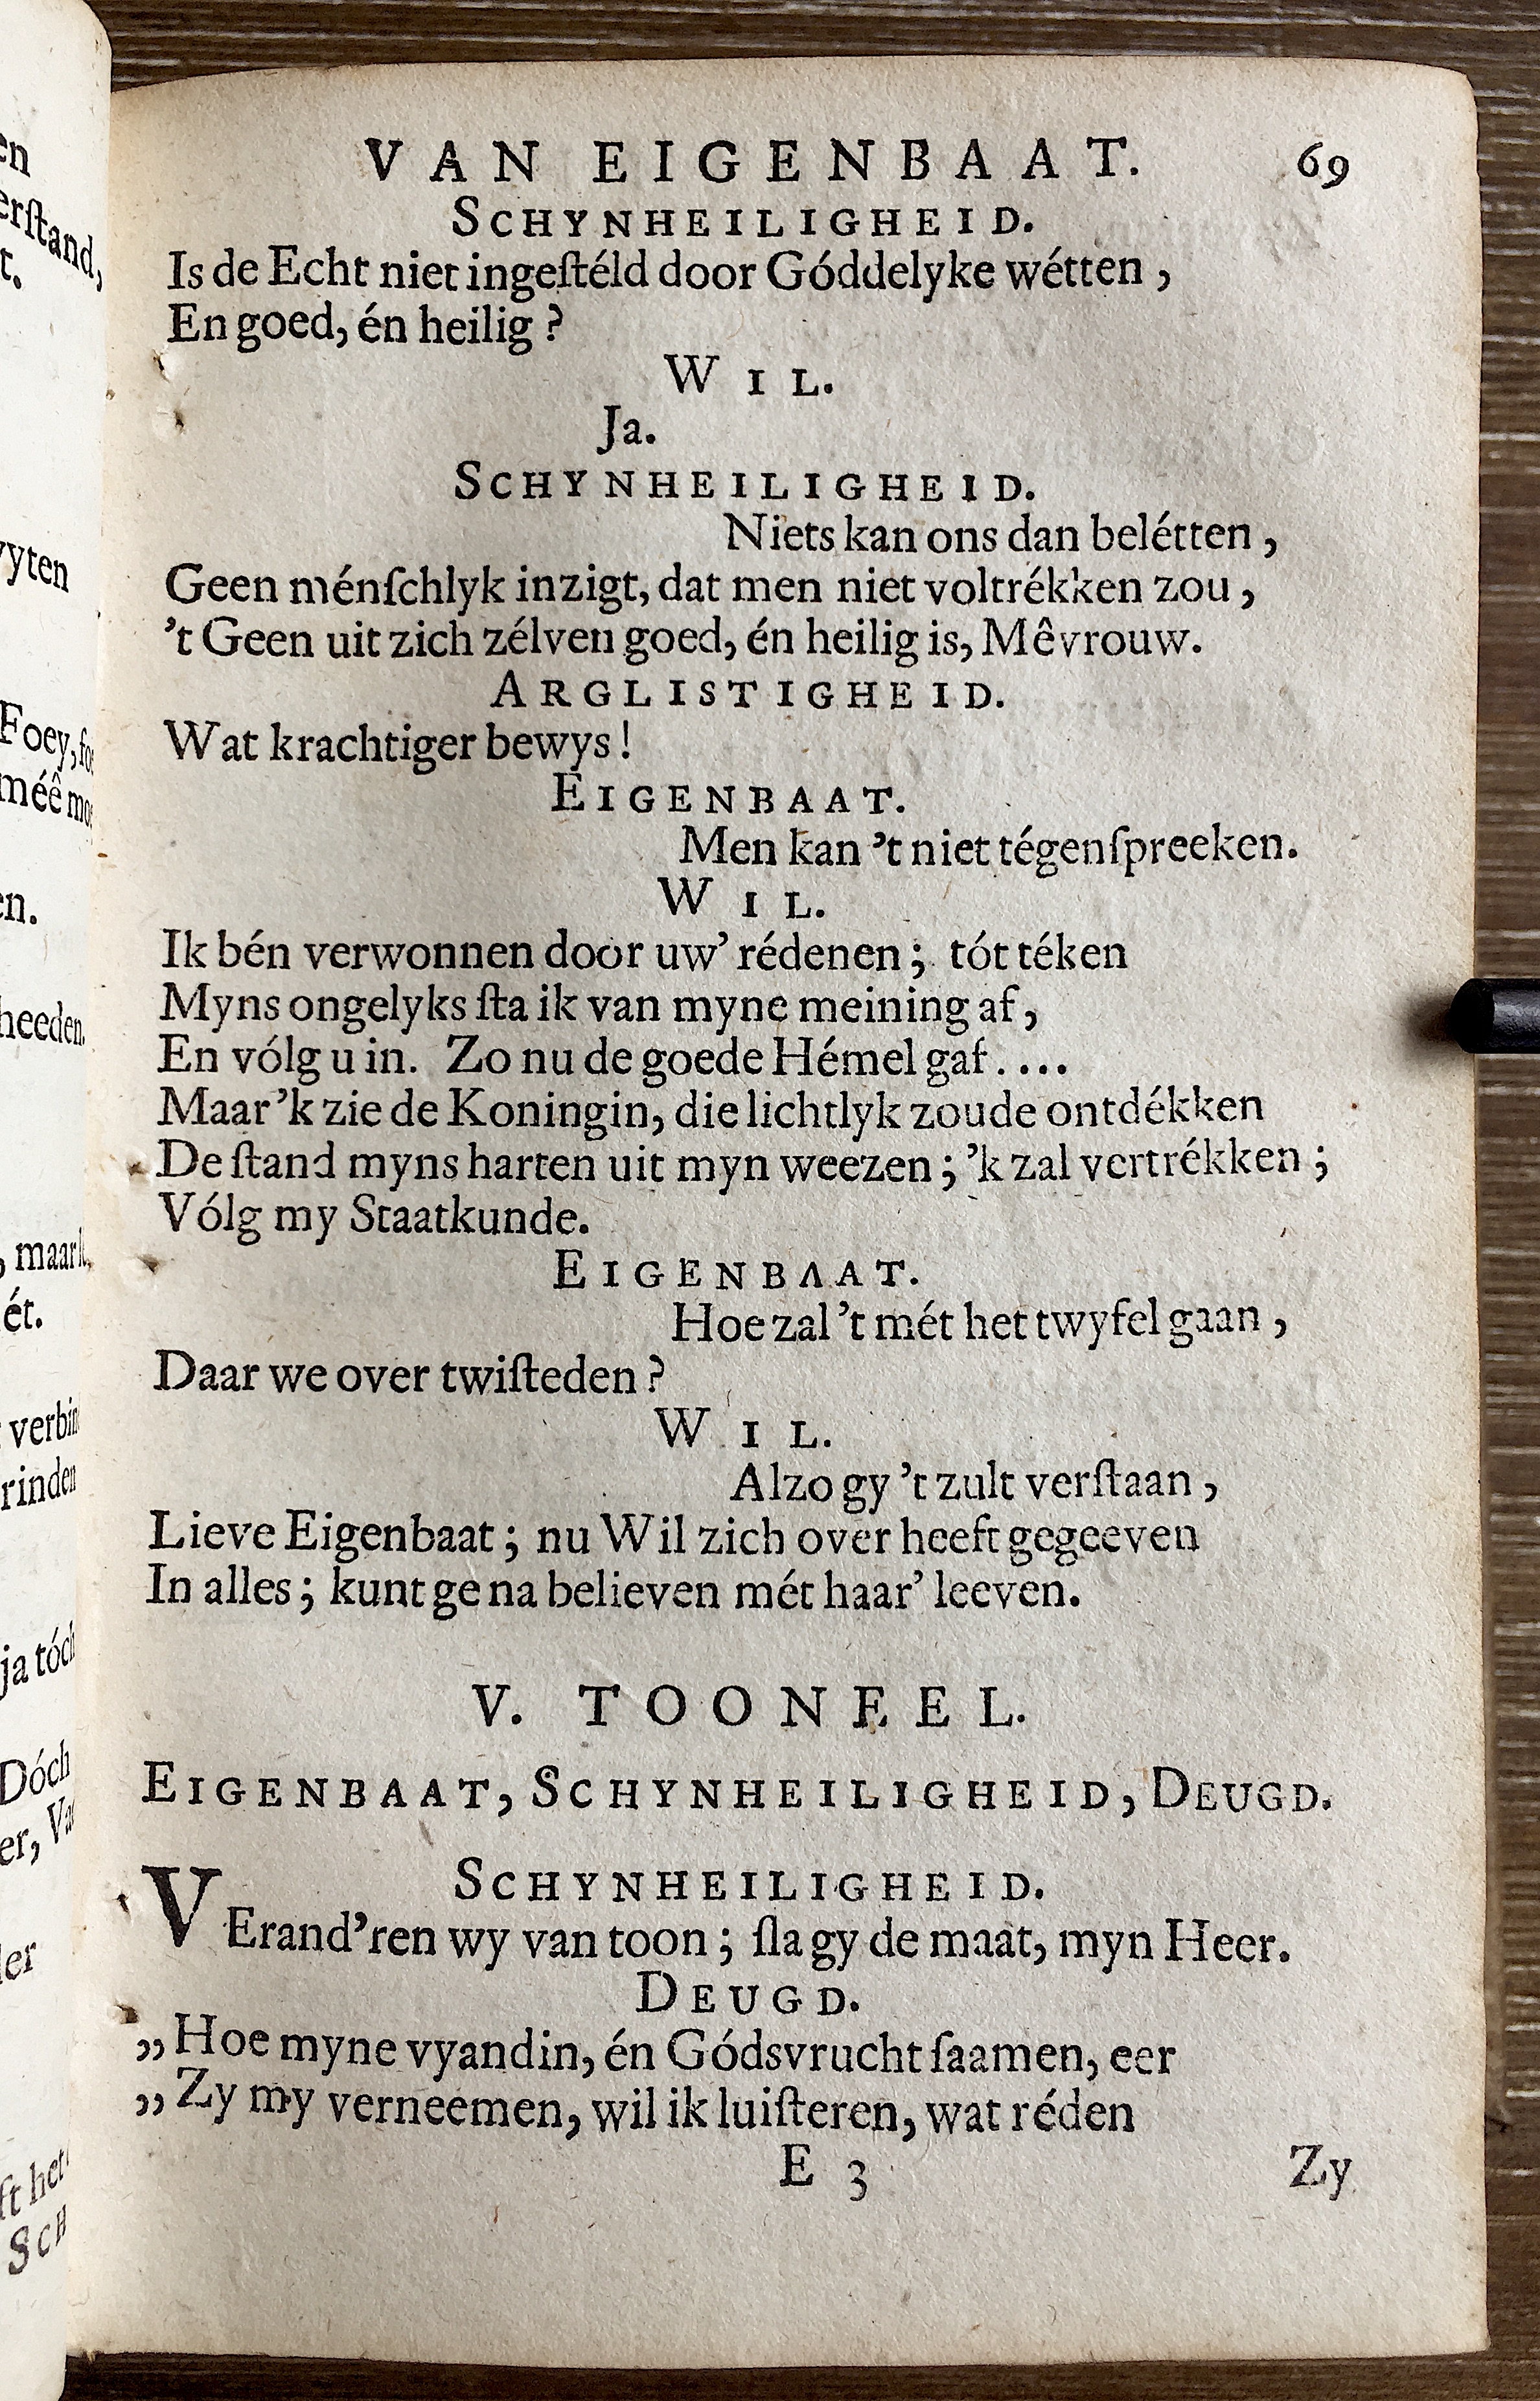 VAN EIGENBAAT. 69
SCHYNHEILIGHEID.
Is de Echt niet ingeſtéld door Góddelyke wétten,
En goed, én heilig?
WIL.
Ja.
SCHYNHEILIGHEID.
Niets kan ons dan belétten,
Geen ménſchlyk inzigt, dat men niet voltrékken zou,
't Geen uit zich zélven goed, én heilig is, Mêvrouw.
ARGLISTIGHEID.
Wat krachtiger bewys!
EIGENBAAT.
Men kan 't niet tégenſpreeken.
WIL.
Ik bén verwonnen door uw' rédenen; tót téken
Myns ongelyks ſta ik van myne meining af,
En vólg u in. Zo nu de goede Hémel gaf....
Maar 'k zie de Koningin, die lichtlyk zoude ontdékken
De ſtand myns harten uit myn weezen; 'k zal vertrékken;
Vólg my Staatkunde.
EIGENBAAT.
Hoe zal 't mét het twyfel gaan,
Daar we over twiſteden?
WIL.
Alzo gy 't zult verſtaan,
Lieve Eigenbaat; nu Wil zich over heeft gegeeven
In alles; kunt ge na believen mét haar' leeven.
V. TOONEEL.
EIGENBAAT, SCHYNHEILIGHEID, DEUGD.
SCHYNHEILIGHEID.
VErand'ren wy van toon; ſla gy de maat, myn Heer.
DEUGD.
„Hoe myne vyandin, én Gódsvrucht ſaamen, eer
„Zy my verneemen, wil ik luiſteren, wat réden
E 3 Zy
en
erſtand,
t.
yten
Foey,
méê
en.
heeden.
, maar
ét.
verbin
rinden
ja tóch
Dóch
er,
der
ſt het
SCH